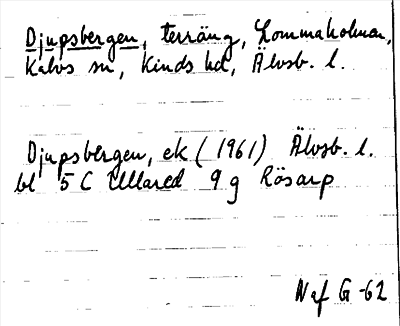 Djupsbergen, terräng, Lommakolman,
Kalvs sn, Kinds hd, Älvsb. l.
Djupsbergen, ek (1961) Älvsb. l.
bl 5C Ullared 9 g Rösarp
N af G -62